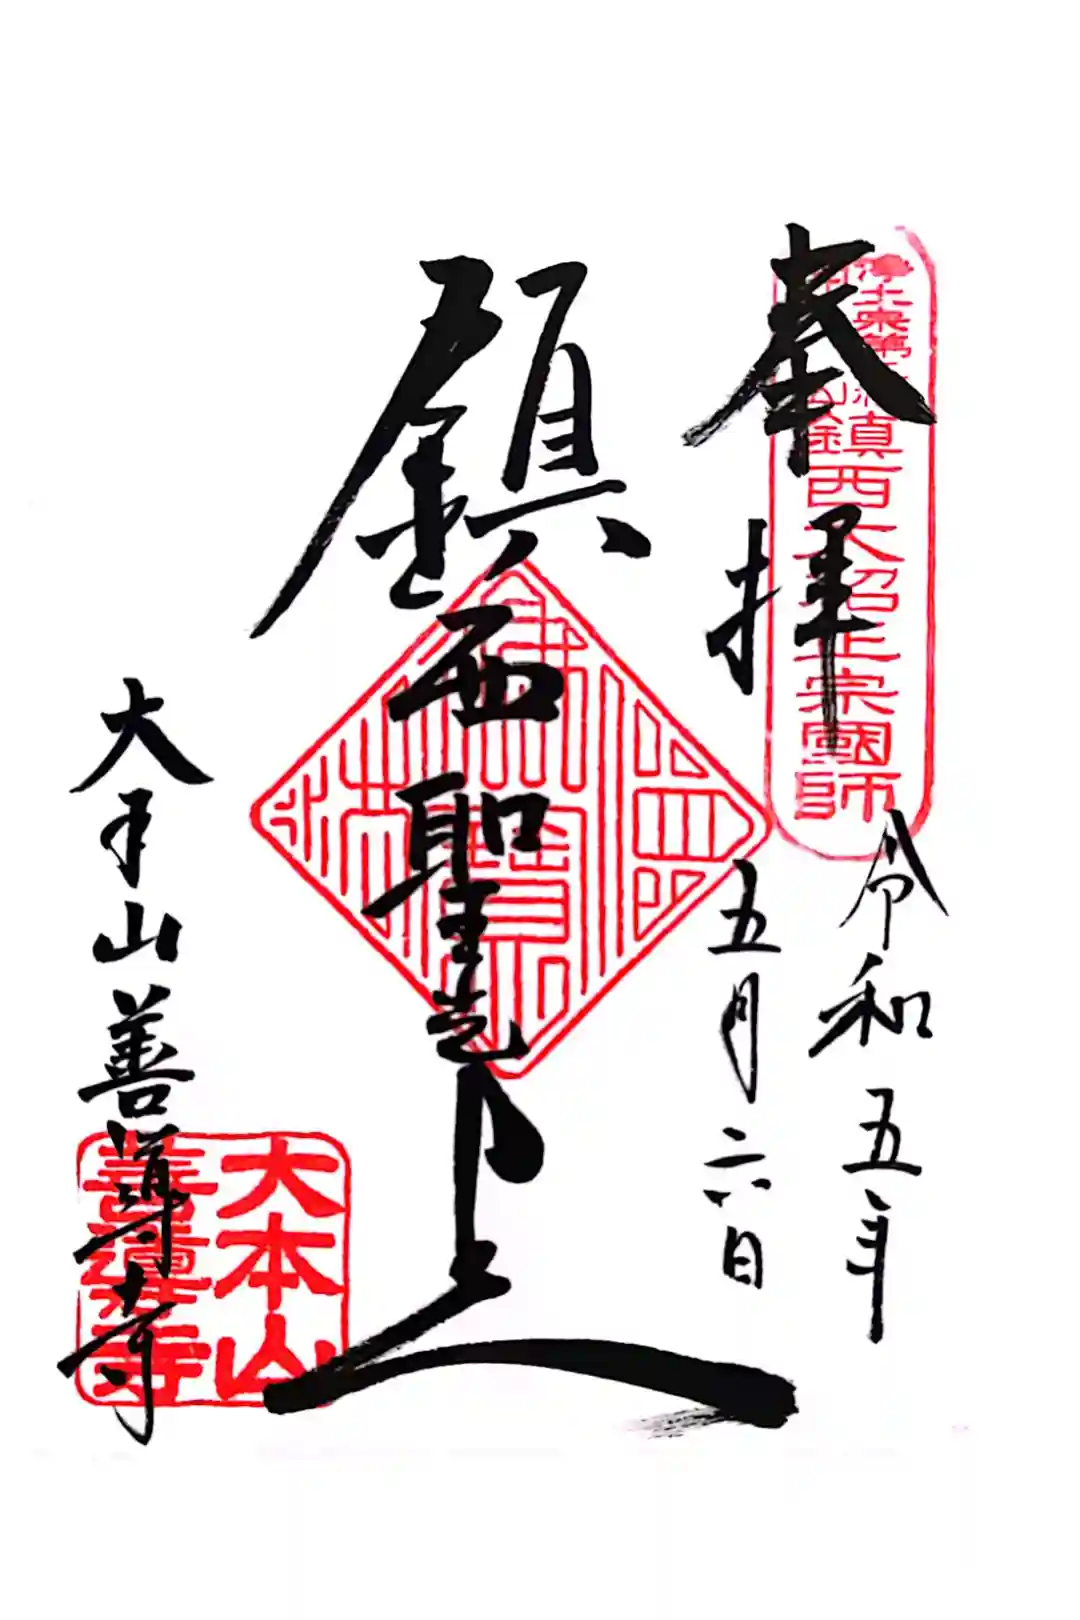 奉拝
淨土宗第二祖
開山
鎮西大紹正宗國師
令和五年
五月六日
鎮西聖光上人
大本山善導寺
大本山
善導寺